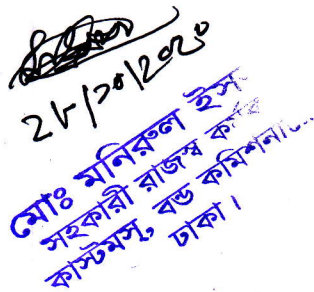 ২৮/১০/২০২০
মোঃ মনিরুল ইস
সহকারী রাজস্ব
কাস্টমস্, বন্ড কমিশনা
ঢাকা।